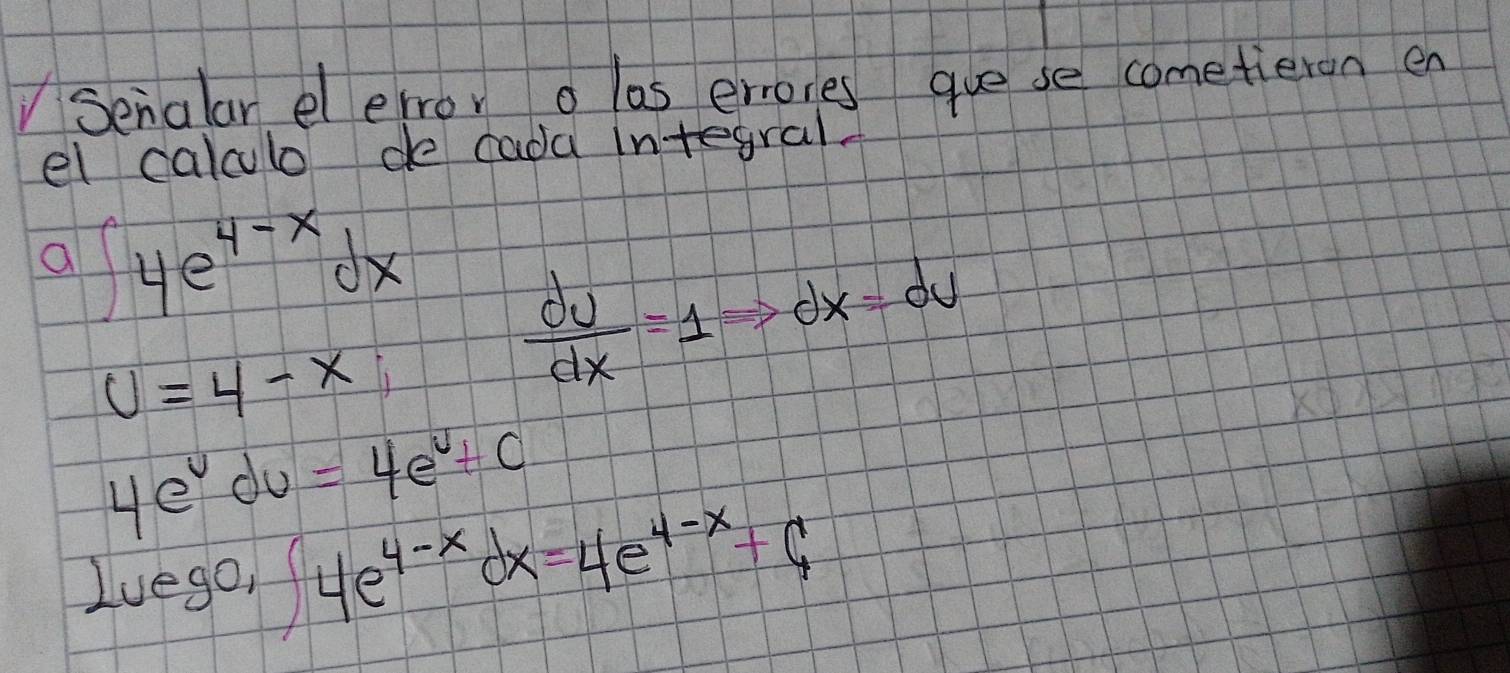 ✓ Señalar el error o las errores que se cometieron en
el calculo de cada integral.
a ∫4e^{4-x} dx
U = 4 - x; du/dx = 1 ⇒ dx = du
4e^u du = 4e^u + C
Luego, ∫4e^{4-x} dx = 4e^{4-x} + C